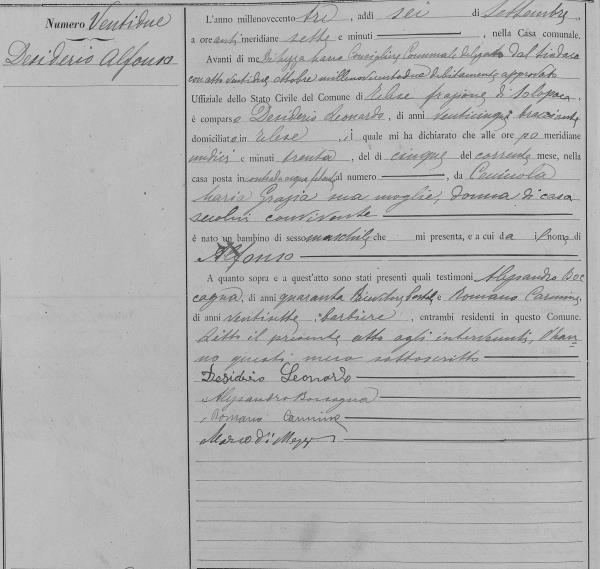 Numero Ventidue
Desiderio Alfonso
L'anno millenovecento tre, addì sei di Settembre,
a ore anti meridiane sette e minuti, nella Casa comunale.
Avanti di me Mario Consigliere Comunale delegato dal Sindaco
con atto ventidue ottobre millenovecentodue debitamente approvato
Uffiziale dello Stato Civile del Comune di Telese frazione di Solopaca
è comparso Desiderio Leonardo, di anni venticinque bracciante
domiciliato in Telese, il quale mi ha dichiarato che alle ore po meridiane
undici e minuti trenta, del dì cinque del corrente mese, nella
casa posta in contrada acqua al numero, da
Maria Grazia sua moglie, donna di casa
secolui convivente
è nato un bambino di sesso maschile che mi presenta, e a cui dà il nome di
Alfonso
A quanto sopra e a quest'atto sono stati presenti quali testimoni Alessandro Boc
cagna, di anni quaranta e Romano Carmine,
di anni ventisette, barbiere, entrambi residenti in questo Comune.
Letto il presente atto agli intervenuti, l'han-
no questi meco sottoscritto
Desiderio Leonardo
Alessandro Boccagna
Romano Carmine
Mario di Mezza